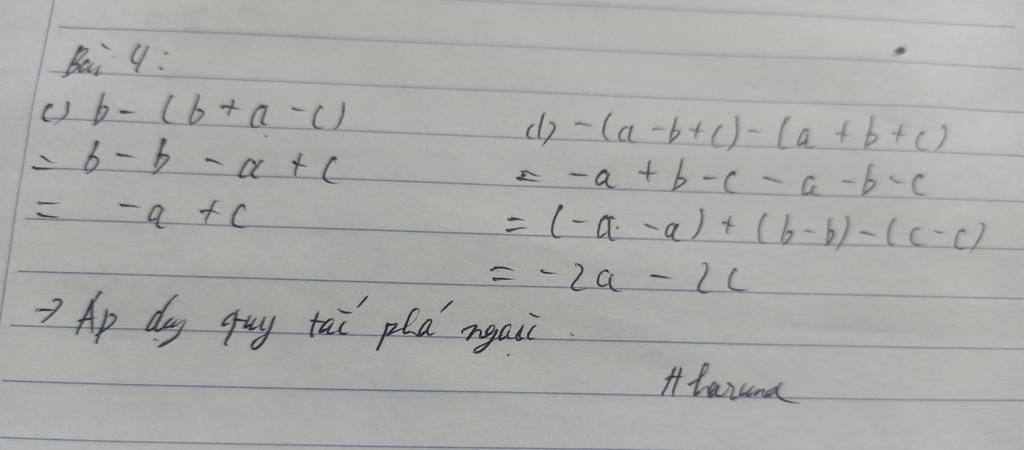 Bài 4:
c) b - (b + a - c)
= b - b - a + c
= -a + c
d) -(a - b + c) - (a + b + c)
= -a + b - c - a - b - c
= (-a - a) + (b - b) - (c - c)
= -2a - 2c
→ Áp dụng quy tắc phá ngoặc.
# haruna